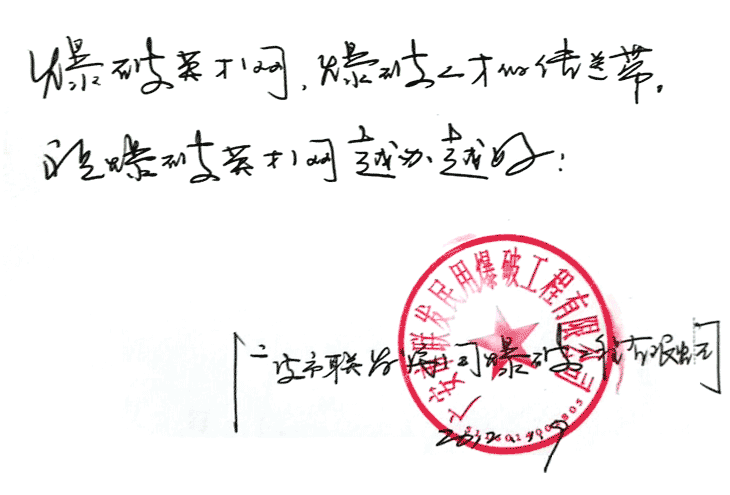 爆破英才网，爆破人才的传送带。
祝爆破英才网越办越好！
广安市联发民用爆破工程有限公司
广安市联发民用爆破工程有限公司